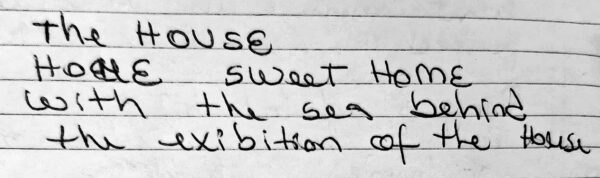 the HOUSE
HOME sweet HOME
with the sea behind
the exibition of the House